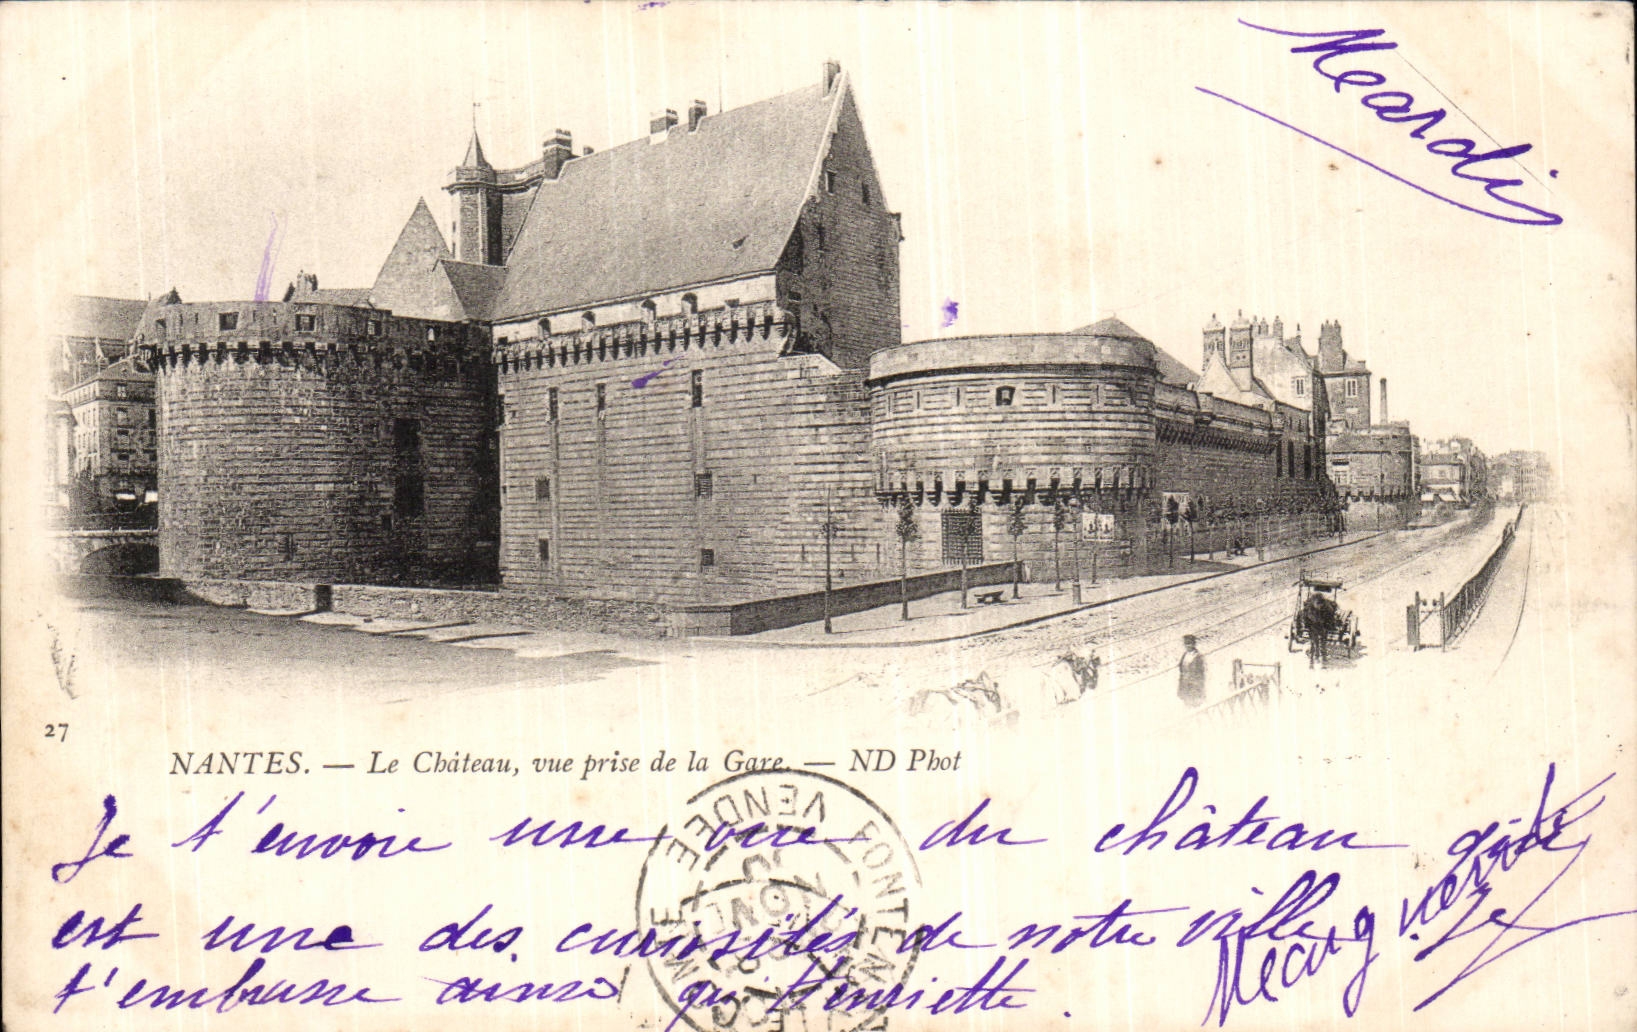 Meardi
27
NANTES. — Le Château, vue prise de la Gare. — ND Phot
Je t'envoie une vue du château qui
est une des curiosités de notre ville Je
t'embrasse ainsi qu'Henriette.
VENDEE
FONTENAY